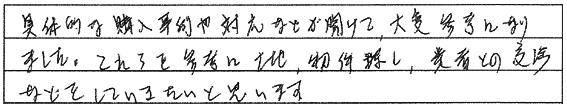 具体的な購入事例や対応などが聞けて、大変参考になり
ました。これらを参考に土地、物件探し、業者との交渉
などをしていきたいと思います